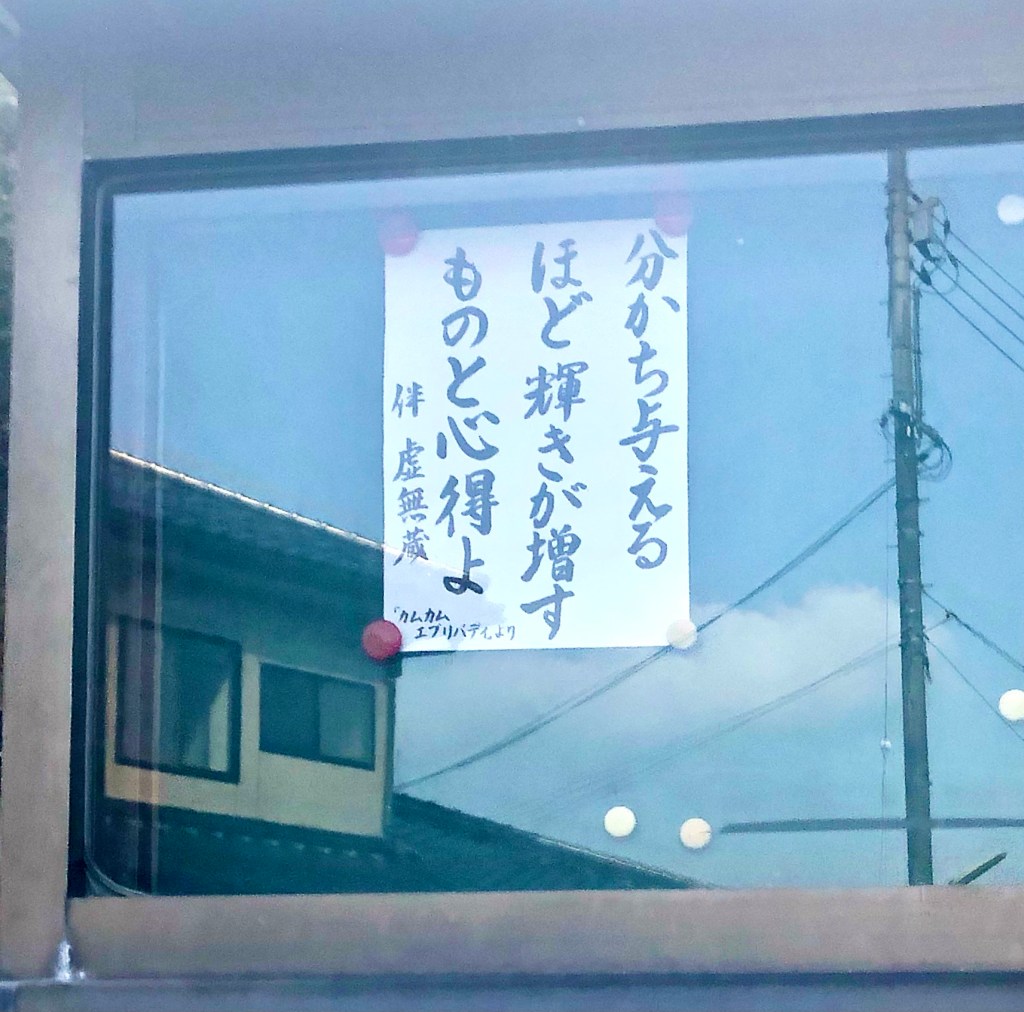 分かち与える
ほど輝きが増す
ものと心得よ
伴 虚無蔵
「カムカム
エブリバディ」より